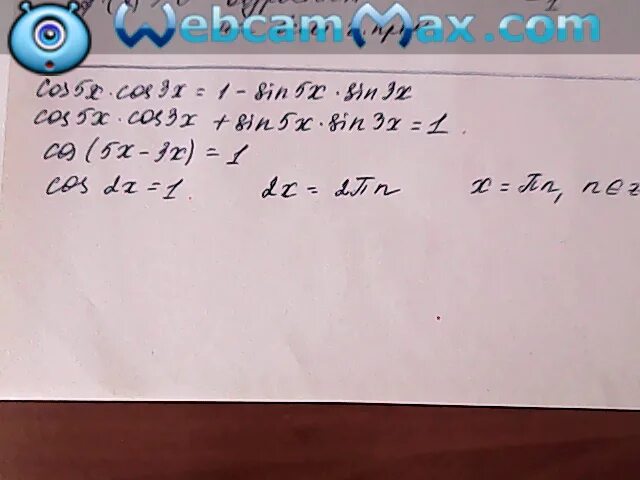 WebcamMax.com
cos5x·cos3x = 1 - sin5x·sin3x
cos5x·cos3x + sin5x·sin3x = 1.
cos(5x-3x) = 1
cos 2x = 1 2x = 2πn x = πn, n∈z